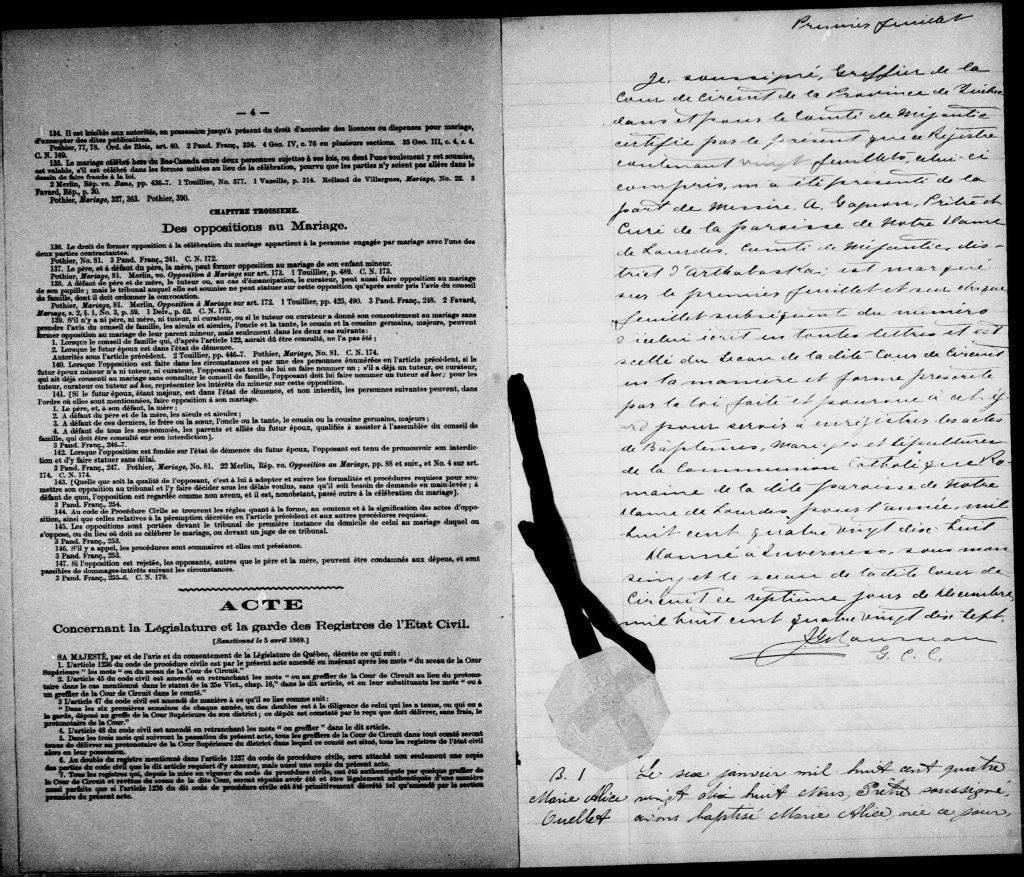 — 4 —
134. Il est loisible aux autorités, en possession jusqu'à présent du droit d'accorder des licences ou dispenses pour mariage,
d'exempter des dites publications.
Pothier, 77, 78. Ord. de Blois, art. 40. 2 Pand. Franç., 324. 4 Geo. IV, c. 76 en plusieurs sections. 35 Geo. III, c. 4, s. 4.
C. N. 169.
135. Le mariage célébré hors du Bas-Canada entre deux personnes sujettes à ses lois, ou dont l'une seulement y est soumise,
est valable, s'il est célébré dans les formes usitées au lieu de la célébration, pourvu que les parties n'y soient pas allées dans le
dessin de faire fraude à la loi.
2 Merlin, Rép. vo. Bans, pp. 436-7. 1 Touillier, No. 577. 1 Vazeille, p. 314. Rolland de Villargues, Mariage, No. 22. 3
Favard, Rép., p. 30.
Pothier, Mariage, 327, 363. Pothier, 390.
CHAPITRE TROISIEME.
Des oppositions au Mariage.
136. Le droit de former opposition à la célébration du mariage appartient à la personne engagée par mariage avec l'une des
deux parties contractantes.
Pothier, No. 81. 3 Pand. Franç., 241. C. N. 172.
137. Le père, et à défaut du père, la mère, peut former opposition au mariage de son enfant mineur.
Pothier, Mariage, 81. Merlin, vo. Opposition à Mariage sur art. 173. 1 Touillier, p. 489. C. N. 173.
138. A défaut de père et de mère, le tuteur ou, au cas d'émancipation, le curateur, peut aussi faire opposition au mariage
de son pupille ; mais le tribunal auquel elle est soumise ne peut statuer sur cette opposition qu'après avoir pris l'avis du conseil
de famille, dont il doit ordonner la convocation.
Pothier, Mariage, 81. Merlin, Opposition à Mariage sur art. 172. 1 Touillier, pp. 425, 490. 3 Pand. Franç., 248. 2 Favard,
Mariage, s. 2, § 1, No. 3, p. 59. 1 Delv., p. 62. C. N. 175.
139. S'il n'y a ni père, ni mère, ni tuteur, ni curateur, ou si le tuteur ou curateur a donné son consentement au mariage sans
prendre l'avis du conseil de famille, les aïeuls et aïeules, l'oncle et la tante, le cousin et la cousine germains, majeurs, peuvent
former opposition au mariage de leur parent mineur, mais seulement dans les deux cas suivants :
1. Lorsque le conseil de famille qui, d'après l'article 122, aurait dû être consulté, ne l'a pas été ;
2. Lorsque le futur époux est dans l'état de démence.
Autorités sous l'article précédent. 2 Touillier, pp. 446-7. Pothier, Mariage, No. 81. C. N. 174.
140. Lorsque l'opposition est faite dans les circonstances et par une des personnes énumérées en l'article précédent, si le
futur époux mineur n'a ni tuteur, ni curateur, l'opposant est tenu de lui en faire nommer un ; s'il a déjà un tuteur, ou curateur,
qui ait déjà consenti au mariage sans consulter le conseil de famille, l'opposant doit lui faire nommer un tuteur ad hoc ; pour les
tuteur, curateur ou tuteur ad hoc, représenter les intérêts du mineur sur cette opposition.
141. [Si le futur époux, étant majeur, est dans l'état de démence, et non interdit, les personnes suivantes peuvent, dans
l'ordre où elles sont mentionnées, faire opposition à son mariage.
1. Le père, et, à son défaut, la mère ;
2. A défaut du père et de la mère, les aïeuls et aïeules ;
3. A défaut de ces derniers, le frère ou la sœur, l'oncle ou la tante, le cousin ou la cousine germains, majeurs ;
4. A défaut de tous les sus-nommés, les parents et alliés du futur époux, qualifiés à assister à l'assemblée du conseil de
famille, qui doit être consulté sur son interdiction].
3 Pand. Franç., 246-7.
142. Lorsque l'opposition est fondée sur l'état de démence du futur époux, l'opposant est tenu de promouvoir son interdic-
tion et d'y faire statuer sans délai.
3 Pand. Franç., 247. Pothier, Mariage, No. 81. 22 Merlin, Rép. vo. Opposition au Mariage, pp. 88 et suiv., et No. 4 sur art.
174. C. N. 174.
143. [Quelle que soit la qualité de l'opposant, c'est à lui à adopter et suivre les formalités et procédures requises pour sou-
mettre son opposition au tribunal et l'y faire décider sous les délais voulus, sans qu'il soit besoin de demande en main-levée ; à
défaut de quoi, l'opposition est regardée comme non avenu, et il est, nonobstant, passé outre à la célébration du mariage].
3 Pand. Franç., 254.
144. Au Code de Procédure Civile se trouvent les règles quant à la forme, au contenu et à la signification des actes d'oppo-
sition, ainsi que celles relatives à la péremption décrétée en l'article précédent et aux autres procédures requises.
145. Les oppositions sont portées devant le tribunal de première instance du domicile de celui au mariage duquel on
s'oppose, ou du lieu où doit se célébrer le mariage, ou devant un juge de ce tribunal.
3 Pand. Franç., 253.
146. S'il y a appel, les procédures sont sommaires et elles ont préséance.
3 Pand. Franç., 253.
147. Si l'opposition est rejetée, les opposants, autres que le père et la mère, peuvent être condamnés aux dépens, et sont
passibles de dommages-intérêts suivant les circonstances.
3 Pand. Franç., 255-6. C. N. 179.
ACTE
Concernant la Législature et la garde des Registres de l'Etat Civil.
[Sanctionné le 5 avril 1869.]
SA MAJESTÉ, par et de l'avis et du consentement de la Législature de Québec, décrète ce qui suit :
1. L'article 1236 du code de procédure civile est par le présent acte amendé en insérant après les mots " du sceau de la Cour
Supérieure " les mots " ou du sceau de la Cour de Circuit."
2. L'article 45 du code civil est amendé en retranchant les mots " ou au greffier de la Cour de Circuit au lieu du protono-
taire dans le cas mentionné dans le statut de la 25e Vict., chap. 16," dans le dit article, et en leur substituants les mots " ou à
un greffier de la Cour de Circuit dans le comté."
3 L'article 47 du code civil est amendé de manière à ce qu'il se lise comme suit :
" Dans les six premières semaines de chaque année, un des doubles est à la diligence de celui qui les a tenus, ou qui en a
la garde, déposé au greffe de la Cour Supérieure de son district ; ce dépôt est constaté par le reçu que doit délivrer, sans frais, le
protonotaire de la Cour."
4. L'article 48 du code civil est amendé en retranchant les mots " ou greffier " dans le dit article.
5. Dans les trois mois qui suivront la passation du présent acte, tous les greffiers de la Cour de Circuit dans tout comté seront
tenus de délivrer au protonotaire de la Cour Supérieure du district dans lequel ce comté est situé, tous les registres de l'état civil
alors en leur possession.
6. Au double du registre mentionné dans l'article 1237 du code de procédure civile, sera attaché non seulement une copie
des parties du code civil que le dit article requiert d'y annexer, mais aussi une copie du présent acte.
7. Tous les registres qui, depuis la mise en vigueur du code de procédure civile, ont été authentiqués par quelque greffier de
la Cour de Circuit et revêtus du sceau de la dite Cour, seront réputés avoir été et être légalement authentiqués d'une manière
aussi parfaite que si l'article 1236 du dit code de procédure civile eût été primitivement décrété tel qu'amendé par le section
première du présent acte.
Premier feuillet
Je, soussigné, Greffier de la
Cour de Circuit de la Province de Québec
dans et pour le Comté de Mégantic
certifie par le présent que ce Registre
contenant vingt feuillets, celui-ci
compris, m'a été présenté de la
part de Messire A. Gagnon, Prêtre et
Curé de la paroisse de Notre Dame
de Lourdes, Comté de Mégantic, dis-
trict d'Arthabaska ; est marqué
sur le premier feuillet et sur chaque
feuillet subséquent du numéro
d'icelui écrit en toutes lettres et est
scellé du Sceau de la dite Cour de Circuit
en la manière et forme prescrite
par la loi faite et pourvue à cet ég-
ard pour servir à enregistrer les actes
de Baptêmes Mariages et Sépultures
de la Communion Catholique Ro-
maine de la dite paroisse de Notre
Dame de Lourdes pour l'année mil
huit cent quatre vingt dix-huit
Donné à Inverness, sous mon
seing et le sceau de la dite Cour de
Circuit ce septième jour de décembre
mil huit cent quatre vingt dix sept.
G. C. C.
B. 1
Marie Alice
Ouellet
Le six janvier mil huit cent quatre
vingt dix huit Nous, Prêtre soussigné,
avons baptisé Marie Alice, née ce jour,